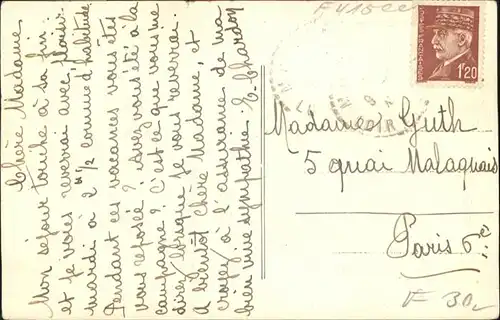 Chère Madame,
Mon séjour touche à sa fin
et je vous reverrai avec plaisir
mardi à 2h 1/2 comme d'habitude
Pendant ces vacances vous êtes
vous reposée ? Avez vous été à la
campagne ? C'est ce que vous me
direz lorsque je vous reverrai.
A bientôt chère Madame, et
croyez à l'assurance de ma
bien vive sympathie. E. Chardon
F V15 ce
1f20
Madame Guth
5 quai Malaquais
Paris 6e
F 30